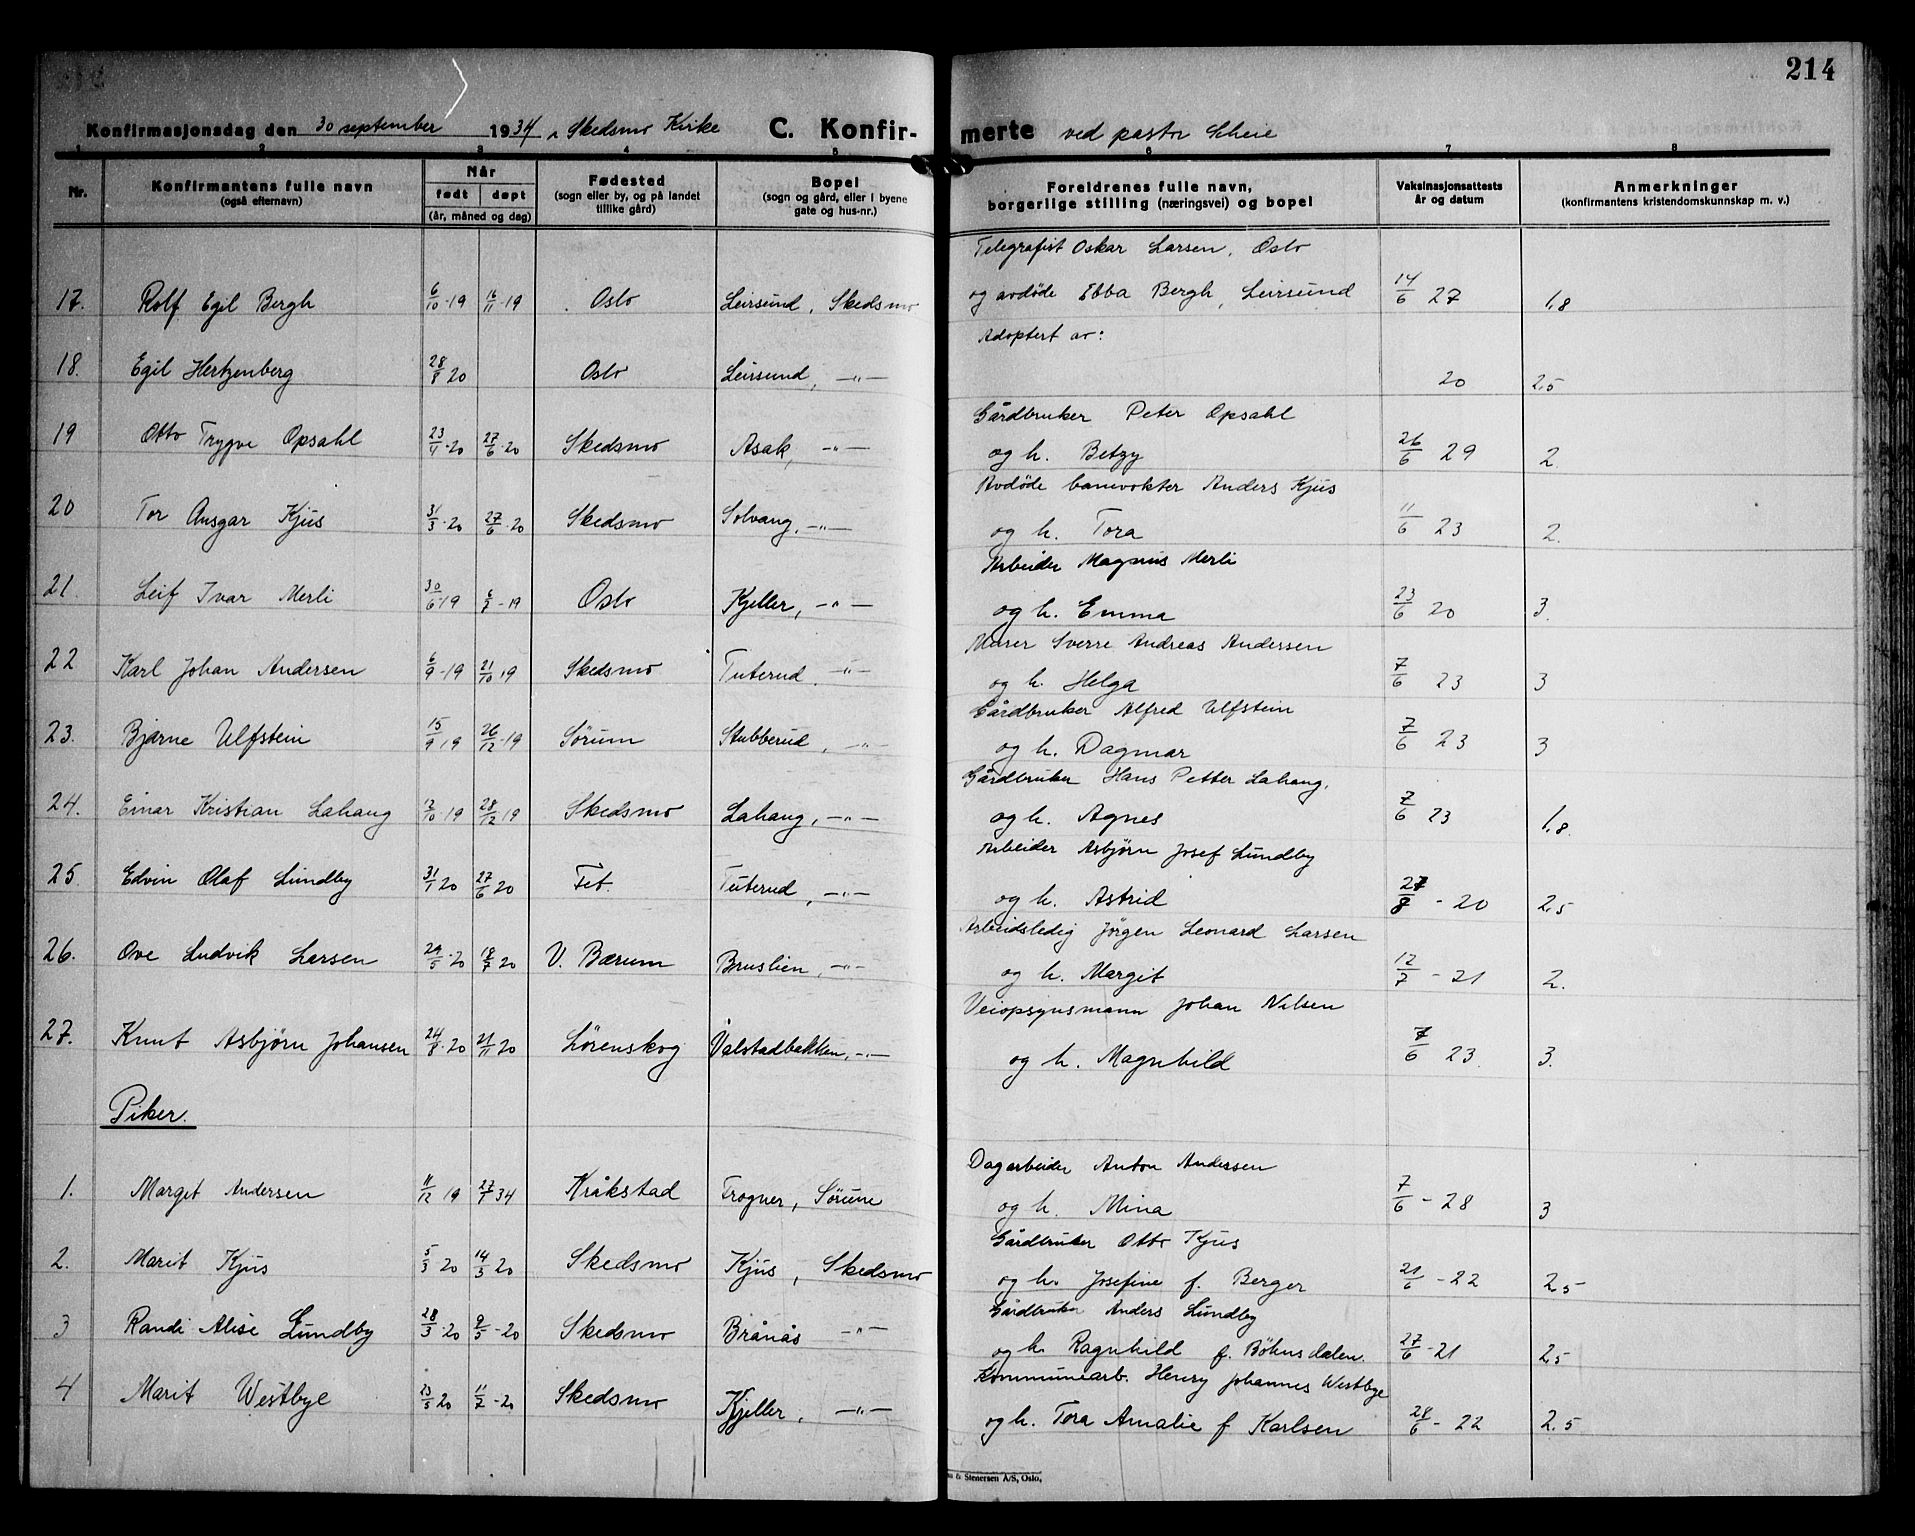 214
Konfirmasjonsdag den 30 september 1934 i Skedsmo Kirke C. Konfir- merte ved pastor Scheie
1 2 3 4 5 6 7 8
Nr. Konfirmantens fulle navn (også efternavn) Når født døpt (år, måned og dag) Fødested (sogn eller by, og på landet tillike gård) Bopel (sogn og gård, eller i byene gate og hus-nr.) Foreldrenes fulle navn, borgerlige stilling (næringsvei) og bopel Vaksinasjonsattests år og datum Anmerkninger (konfirmantens kristendomskunnskap m. v.)
Telegrafist Oskar Larsen, Oslo
17. Rolf Egil Bergh 6/10-19 16/11-19 Oslo Leirsund, Skedsmo og avdøde Ebba Bergh, Leirsund 14/6 27 1,8
Adoptert av:
18. Egil Hertzenberg 28/8 20 Oslo Leirsund, -"- 20 2,5
Gårdbruker Peter Opsahl
19 Otto Trygve Opsahl 23/4-20 27/6-20 Skedsmo Asak, -"- og h. Betzy 26/6 29 2.
Avdøde banevokter Anders Kjus
20 Tor Ansgar Kjus 31/3-20 27/6-20 Skedsmo Solvang, -"- og h. Tora 11/6 23 2.
Arbeider Magnus Merli
21. Leif Ivar Merli 30/6-19 Oslo Kjeller, -"- og h. Emma 23/6 20 3.
Murer Sverre Andreas Andersen
22 Karl Johan Andersen 6/9-19 21/10 19 Skedsmo Tuterud -"- og h. Helga 7/6 23 3
Gårdbruker Alfred Ulfstein
23. Bjarne Ulfstein 15/9 19 26/12-19 Sørum Stubberud, -"- og h. Dagmar 7/6 23 3
Gårdbruker Hans Petter Lahaug.
24. Einar Kristian Lahaug 12/10-19 28/12 19 Skedsmo Lahaug, -"- og h. Agnes 7/6 23 1,8.
Arbeider Asbjørn Josef Lundby
25. Edvin Olaf Lundby 31/1 20 27/6 20 Fet. Tuterud, -"- og h. Astrid 27/8 - 20 2,5
Arbeidsledig Jørgen Leonard Larsen
26. Ove Ludvik Larsen 29/5-20 18/7 20 V. Bærum Bruslien, -"- og h. Margit 12/7 - 21 2.
Veiopsynsmann Johan Nilsen
27. Knut Asbjørn Johansen 24/8-20 21/11 20 Lørenskog Valstadbakken, -"- og h. Magnhild 7/6 23 3.
Piker.
Dagarbeider Anton Andersen
1. Margit Andersen 11/12 19 27/1 34 Kråkstad Frogner, Sørum og h. Mina 7/6 - 28 3
Gårdbruker Otto Kjus
2. Marit Kjus 5/3 20 14/3 20 Skedsmo Kjus, Skedsmo og h. Josefine f. Berger 21/6 - 22 2,5
Gårdbruker Anders Lundby
3 Randi Alise Lundby 28/3-20 9/5-20 Skedsmo Brånås -"- og h. Ragnhild f. Bøhnsdalen. 27/6-21 2,5
Kommunearb. Henry Johannes Westbye
4 Marit Westbye 23/5 20 11/7-20 Skedsmo Kjeller, -"- og h. Tora Amalie f Karlsen 28/6 - 22 2,5
& Stenersen A/S, Oslo.